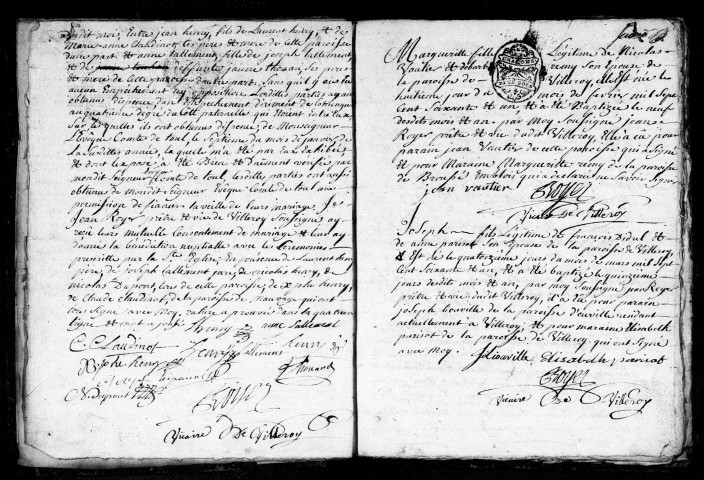 dudit mois, Entre jean henry, fils de Laurent henry, et de
Marie anne Claudinot, ses pere et mere de cette paroisse
d'une part et anne Lallement, fille de joseph Lallement
et de deffunte jeanne thoxai, ses pere
et mere de cette paroisse d'autre part, Sans qu'il y ait eu
aucun Empechement ny opposition, Lesdittes parties ayant
obtenus dispence dans l'Empechement dirimant de consanguinité
au quatrieme degré du coté paternelle qui etoient entre Eux,
Sur la quelles ils ont obtenus de rome, de Monseigneur
L'Evêque Comte de toul, le Septieme du mois de janvier de
la susdittes année, la quelle m'a été par eux Exhibée
et dont l'exposé a été Bien et Duement verifié par
mondit Seigneur Comte de toul, lesdittes parties ont aussi
obtenus de mondit Seigneur Evêque Comte de toul une
permission de fiancer la veille de leurs mariage, je
jean Royer prêtre et vicaire de Villeroy Soussigné ay
reçu leurs mutuelle Consentement de mariage et leur ay
donné la bénédiction nuptialle avec les Ceremonies
prescritte par la Ste Eglise, En presence de Laurent henry
pere, de joseph Lallement pere, de nicolas henry, de
nicolas Dupont, tous de cette paroisse, de Xphe henry,
de Claude Claudinot, de la paroisse de mauvage qui ont
tous signé avec Moy
Ligne et mot a
henry anne Lallemend
C. Claudinot
Xphe henry
J Lallement
N. Dupont
J Royer
Vicaire De Villeroy
Marguerite fille Légitime de Nicolas
Vautier et de barbe remy Son Epouse de
la paroisse de Villeroy, Elle est née le
huitieme jour du mois de fevrier mil Sept
Cent Soixante et un et a été Baptizée le neuf
desdits mois et an par Moy Soussigné jean
Royer prêtre et vic dudit Villeroy, Elle a eü pour
parain jean Vautier de cette paroisse qui a Signé
et pour Maraine Marguerite remy de la paroisse
de Broussé En blois qui a declaré ne Savoir Signer
jean vautier
J Royer
Vicaire De Villeroy
Joseph fils Légitime de françois Didul et
de anne parisot Son Epouse de la paroisse de Villeroy,
est né le quatorzieme jours du mois de mars mil Sept
Cent Soixante et un, et a été baptizé le quinzieme
jours desdits mois et an, par moy Soussigné jean Royer
prêtre et vic dudit Villeroy, il a eü pour parain
joseph Liouville de la paroisse d'euville residant
actuellement a Villeroy, et pour maraine Elisabeth
parisot de la paroisse de Villeroy, qui ont Signé
avec Moy. J Liouville Elisabeth parisot
J Royer
vicaire De Villeroy